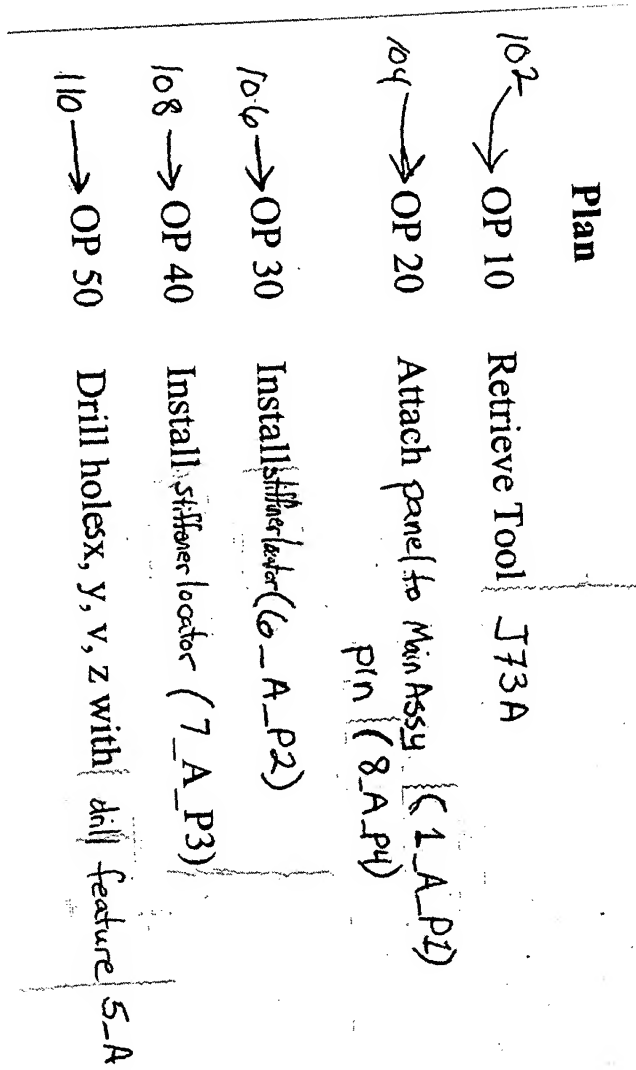 Plan
102 → OP 10 Retrieve Tool J73A
104 → OP 20 Attach panel to Main Assy (1_A_P1)
pin (8_A_P4)
106 → OP 30 Install stiffener locator (6_A_P2)
108 → OP 40 Install stiffener locator (7_A_P3)
110 → OP 50 Drill holesx, y, v, z with drill feature 5_A